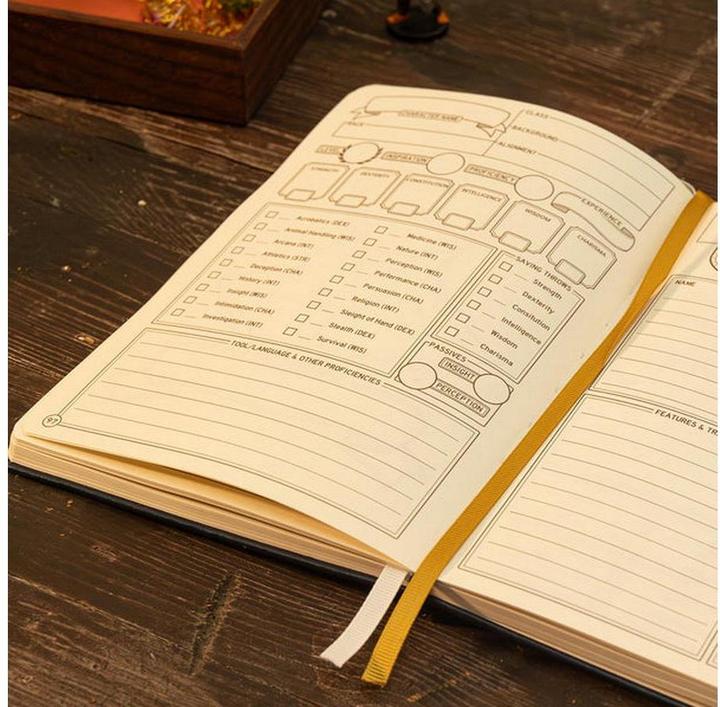 CHARACTER NAME
RACE
CLASS
BACKGROUND
ALIGNMENT
LEVEL
INSPIRATION
PROFICIENCY
EXPERIENCE
STRENGTH
DEXTERITY
CONSTITUTION
INTELLIGENCE
WISDOM
CHARISMA
Acrobatics (DEX)
Animal Handling (WIS)
Arcana (INT)
Athletics (STR)
Deception (CHA)
History (INT)
Insight (WIS)
Intimidation (CHA)
Investigation (INT)
Medicine (WIS)
Nature (INT)
Perception (WIS)
Performance (CHA)
Persuasion (CHA)
Religion (INT)
Sleight of Hand (DEX)
Stealth (DEX)
Survival (WIS)
SAVING THROWS
Strength
Dexterity
Consitution
Intelligence
Wisdom
Charisma
PASSIVES
INSIGHT
PERCEPTION
TOOL/LANGUAGE & OTHER PROFICIENCIES
97
NAME
FEATURES & TR